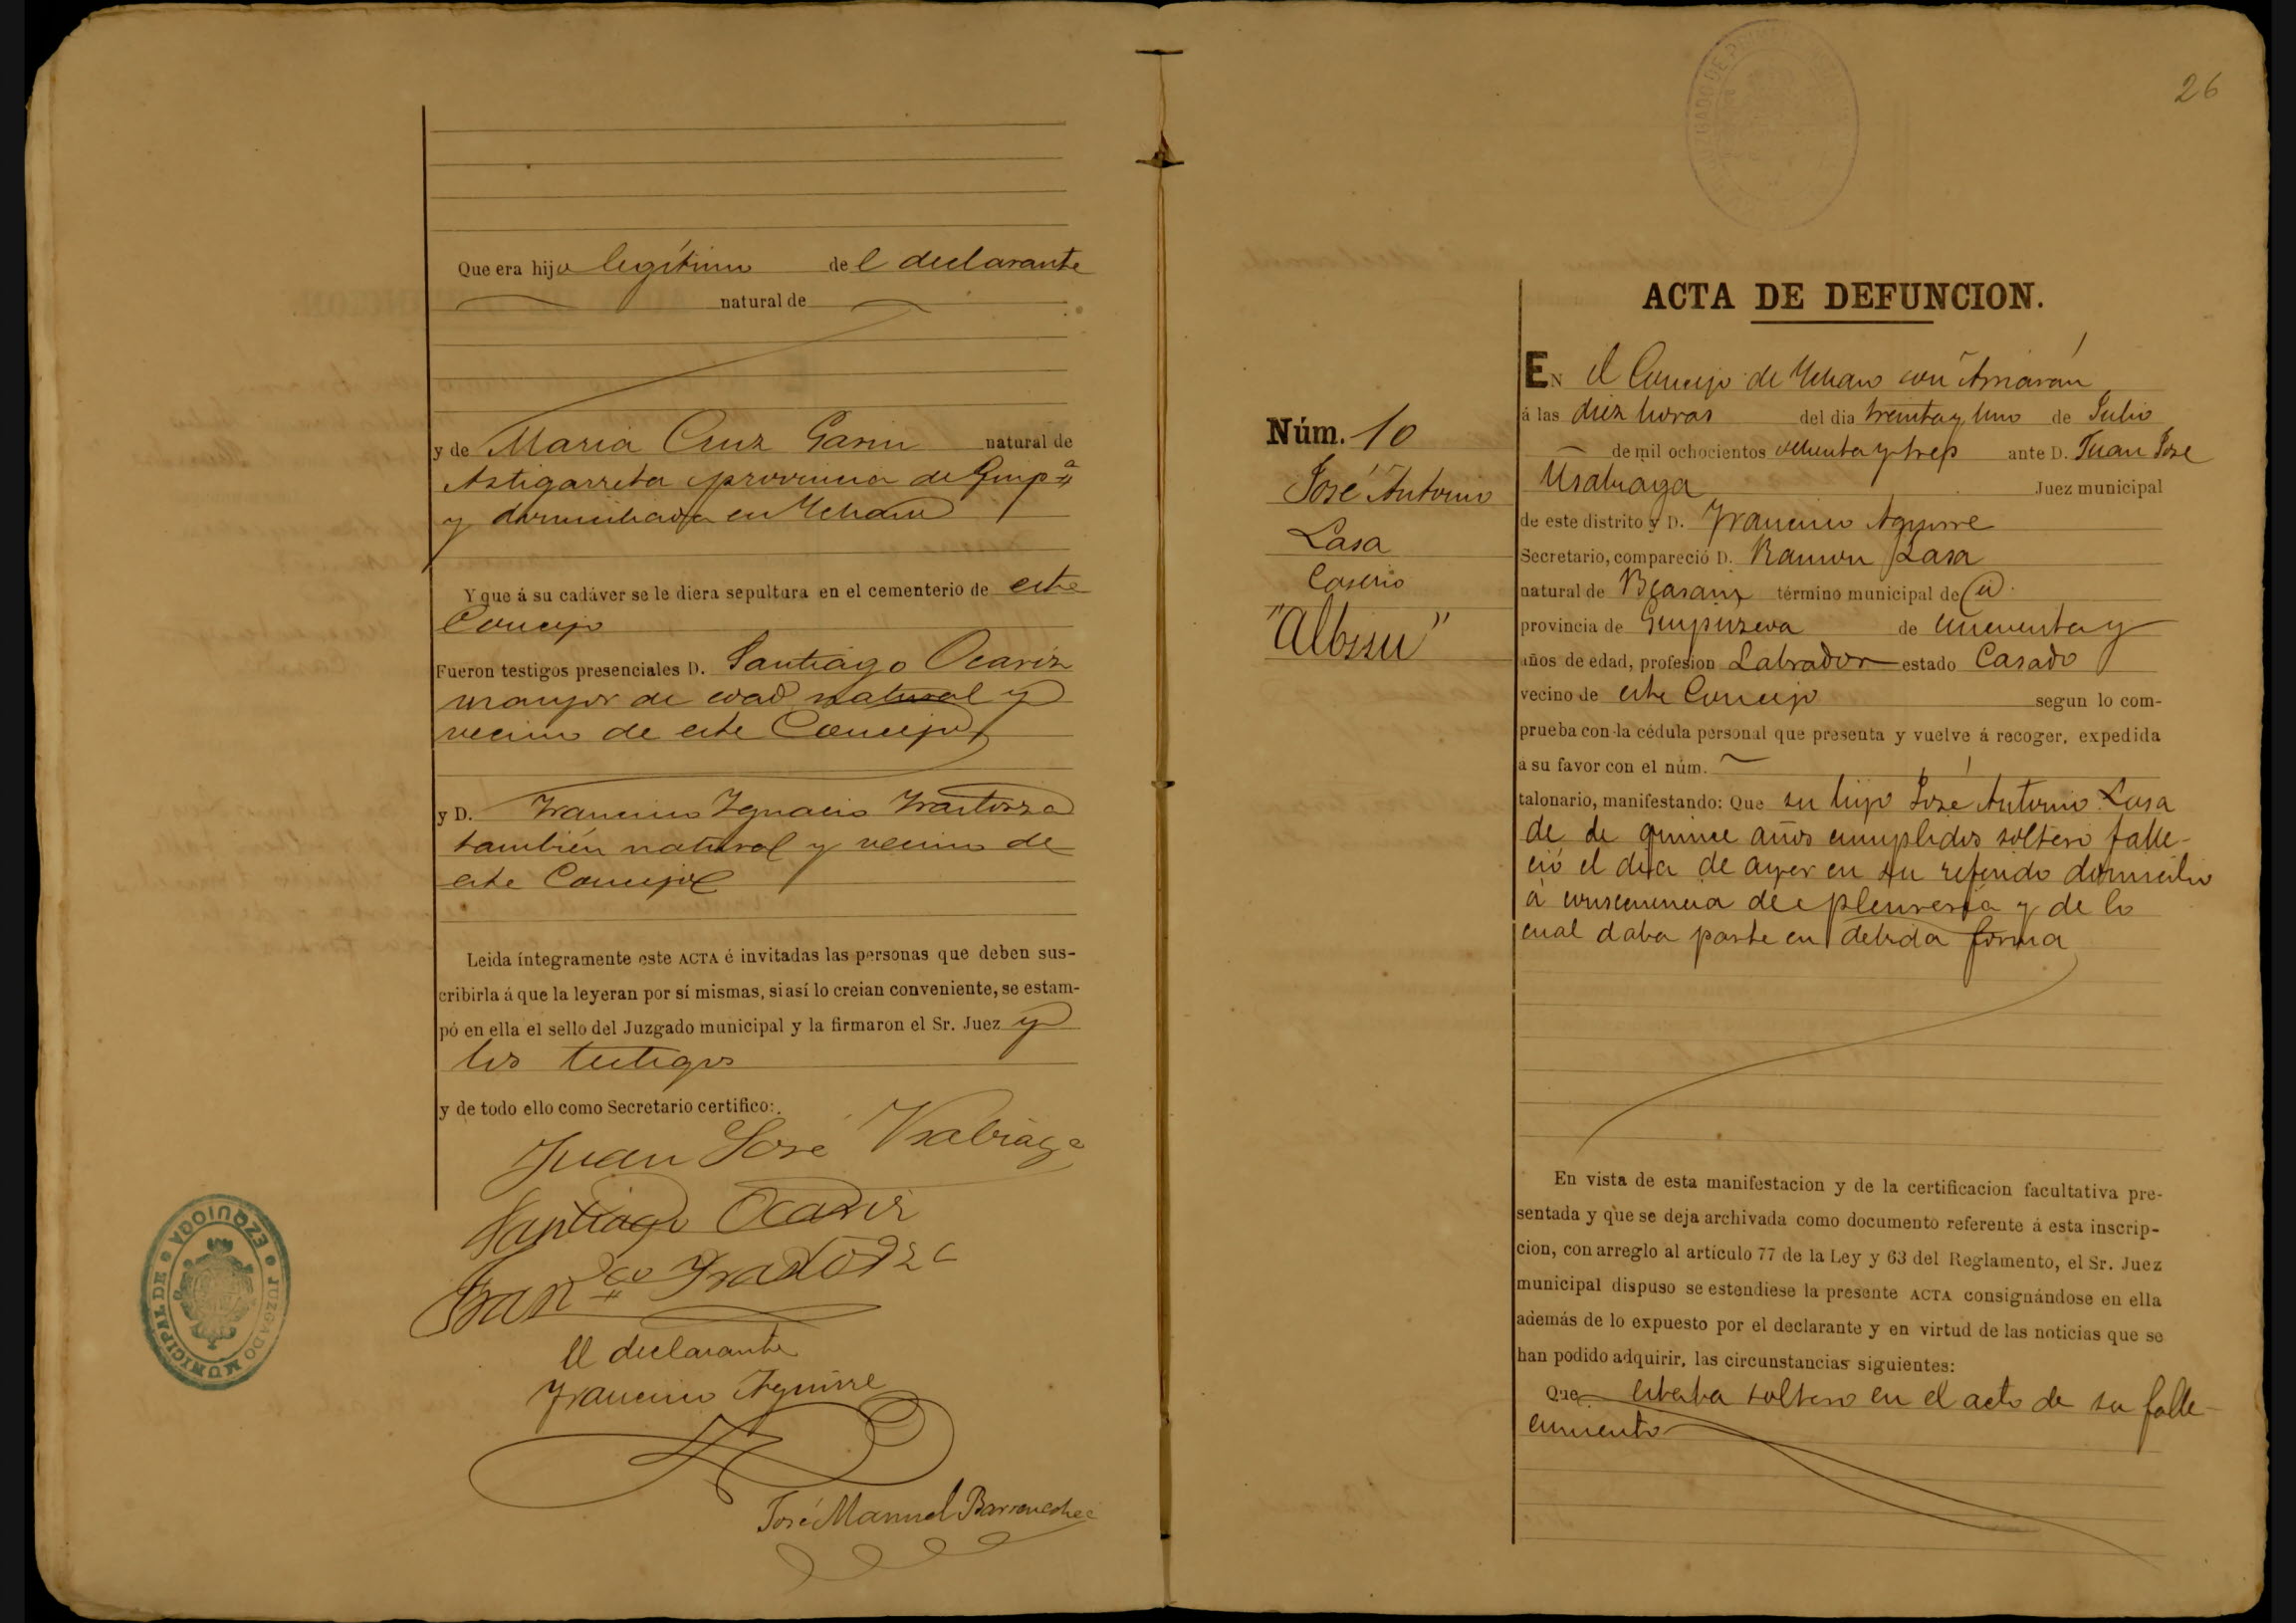 Que era hijo legítimo del declarante
natural de
y de Maria Cruz Garin natural de
Astigarreta provincia de Guipª
y domiciliada en Uchano
Y que á su cadáver se le diera sepultura en el cementerio de este
Concejo
Fueron testigos presenciales D. Santiago Ocariz
mayor de edad natural y
vecino de este Concejo
y D. Francisco Ignacio Irastorza
también natural y vecino de
este Concejo
Leida íntegramente este ACTA é invitadas las personas que deben sus-
cribirla á que la leyeran por sí mismas, si así lo creian conveniente, se estam-
pó en ella el sello del Juzgado municipal y la firmaron el Sr. Juez y
los testigos
y de todo ello como Secretario certifico:
Juan José Usabiaga
Santiago Ocariz
Franco Irastorza
El declarante
Francisco Aguirre
José Manuel Barrenechea
JUZGADO MUNICIPAL DE EZQUIOGA
26
Núm. 10
José Antonio
Lasa
Caserio
"Albisu"
ACTA DE DEFUNCION.
EN el Concejo de
á las diez horas del dia treinta y uno de Julio
de mil ochocientos ochenta y tres ante D. Juan José
Usabiaga Juez municipal
de este distrito y D. Francisco Aguirre
Secretario, compareció D. Ramon Lasa
natural de Beasain término municipal de id.
provincia de Guipuzcoa de cincuenta y
años de edad, profesion Labrador estado Casado
vecino de este Concejo segun lo com-
prueba con la cédula personal que presenta y vuelve á recoger, expedida
a su favor con el núm.
talonario, manifestando: Que su hijo José Antonio Lasa
de de quince años cumplidos soltero falle-
ció el dia de ayer en su referido domicilio
á consecuencia de pleuresía y de lo
cual daba parte en debida forma
En vista de esta manifestacion y de la certificacion facultativa pre-
sentada y que se deja archivada como documento referente á esta inscrip-
cion, con arreglo al artículo 77 de la Ley y 63 del Reglamento, el Sr. Juez
municipal dispuso se estendiese la presente ACTA consignándose en ella
además de lo expuesto por el declarante y en virtud de las noticias que se
han podido adquirir, las circunstancias siguientes:
Que estaba soltero en el acto de su falle-
cimiento